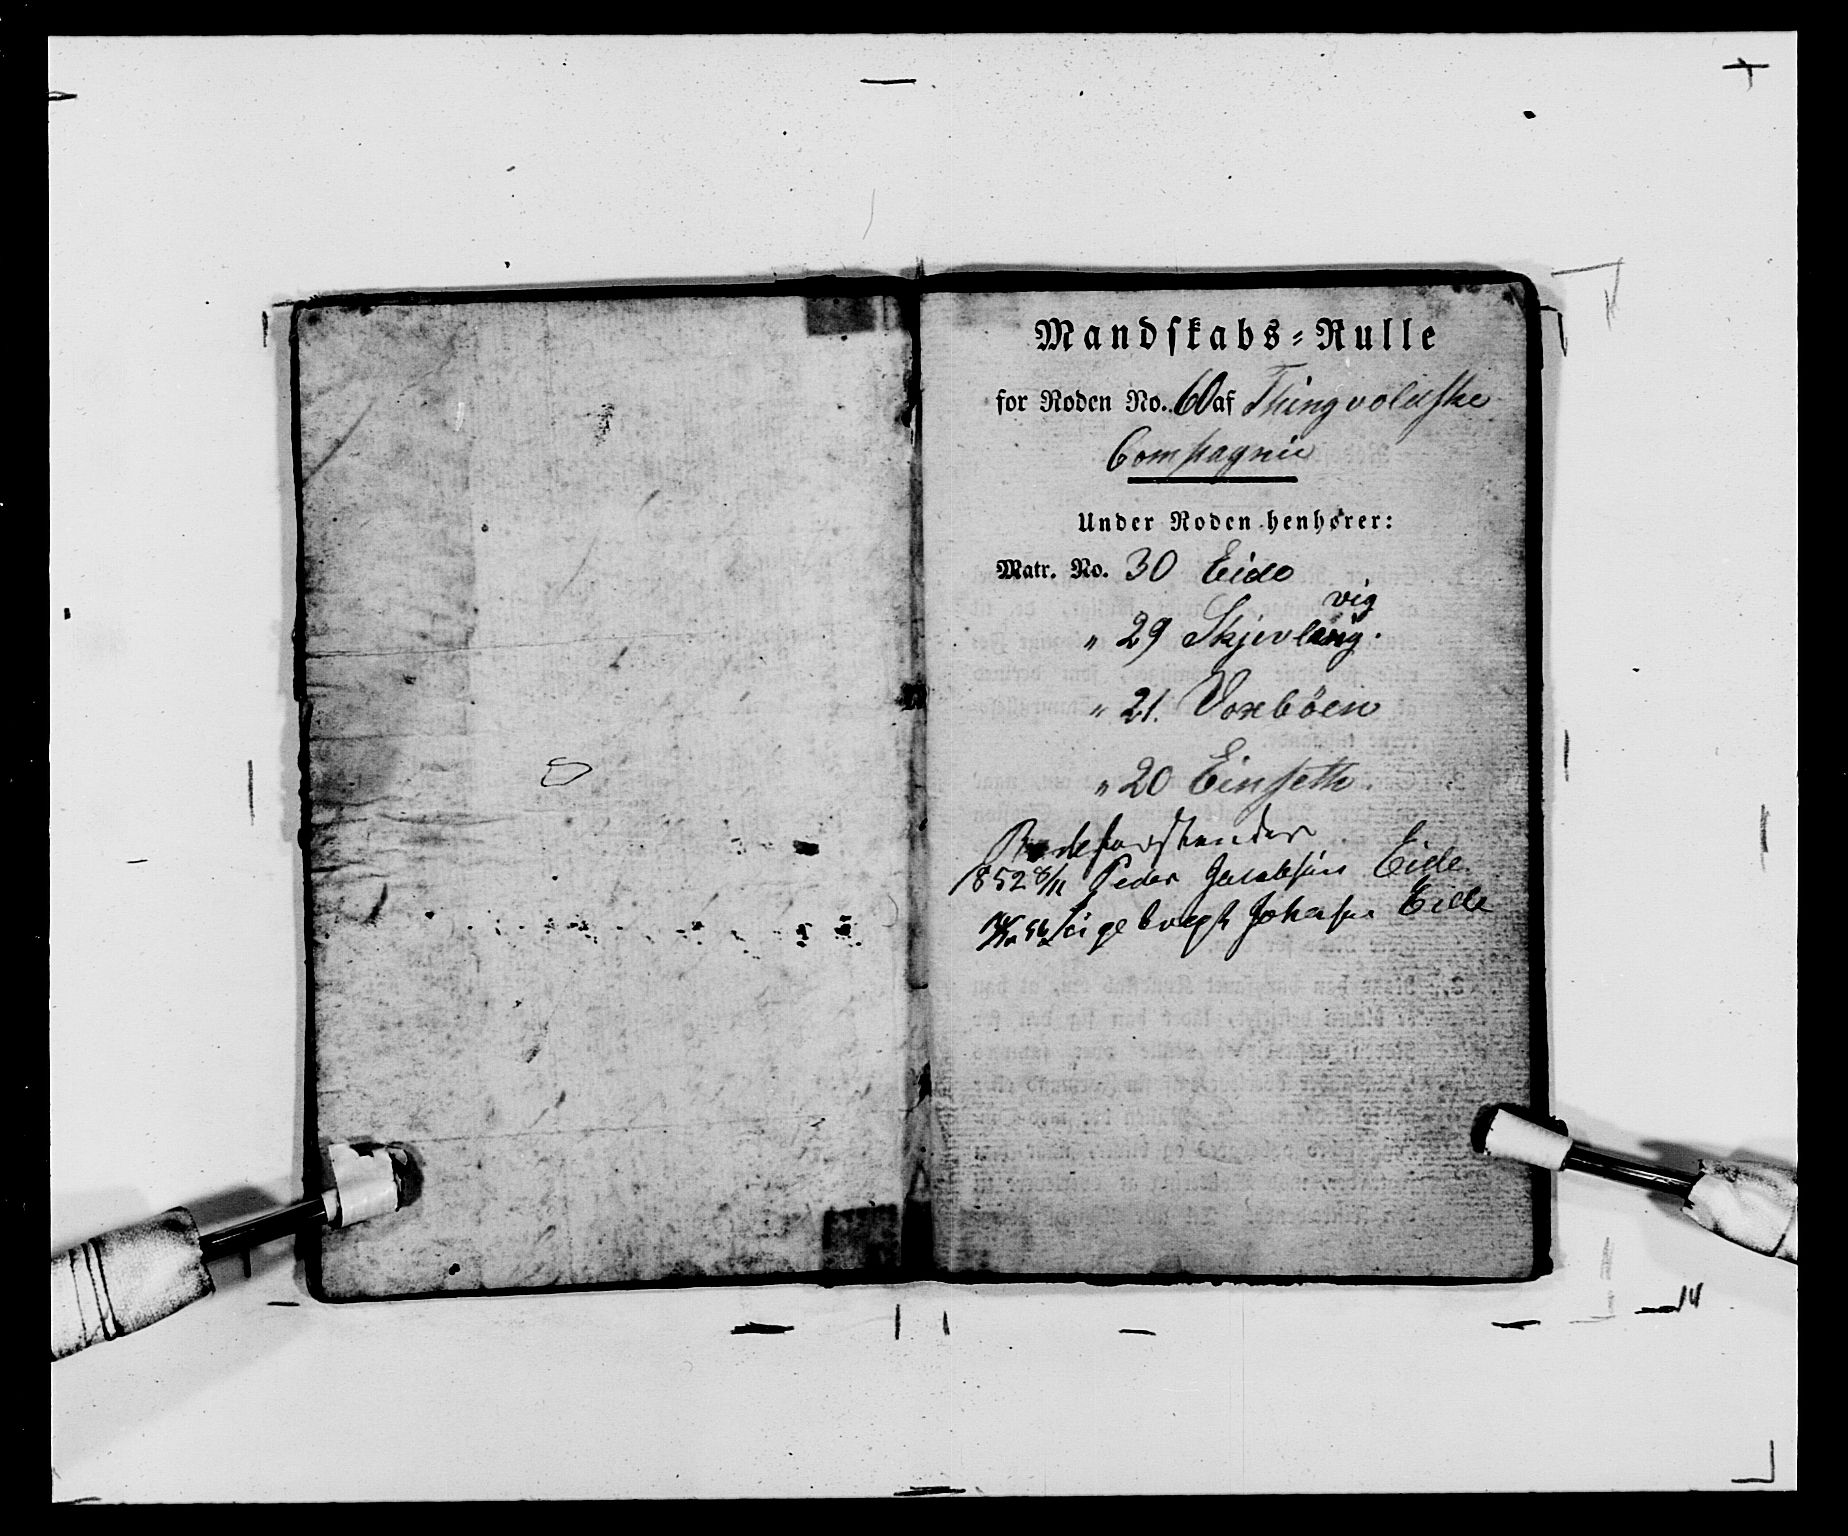 Mandskabs-Rulle
for Roden No. 60 af Thingvoldske
Compagnie
Under Roden henhører:
Matr. No. 30 Eide
" 29 Skjevling. vig
" 21. Voxböen
" 20 Einseth.
Rodeforstander
1852 8/11 Peder Jacobsen Eide
56 Ingebregt Johnsen Eide
14